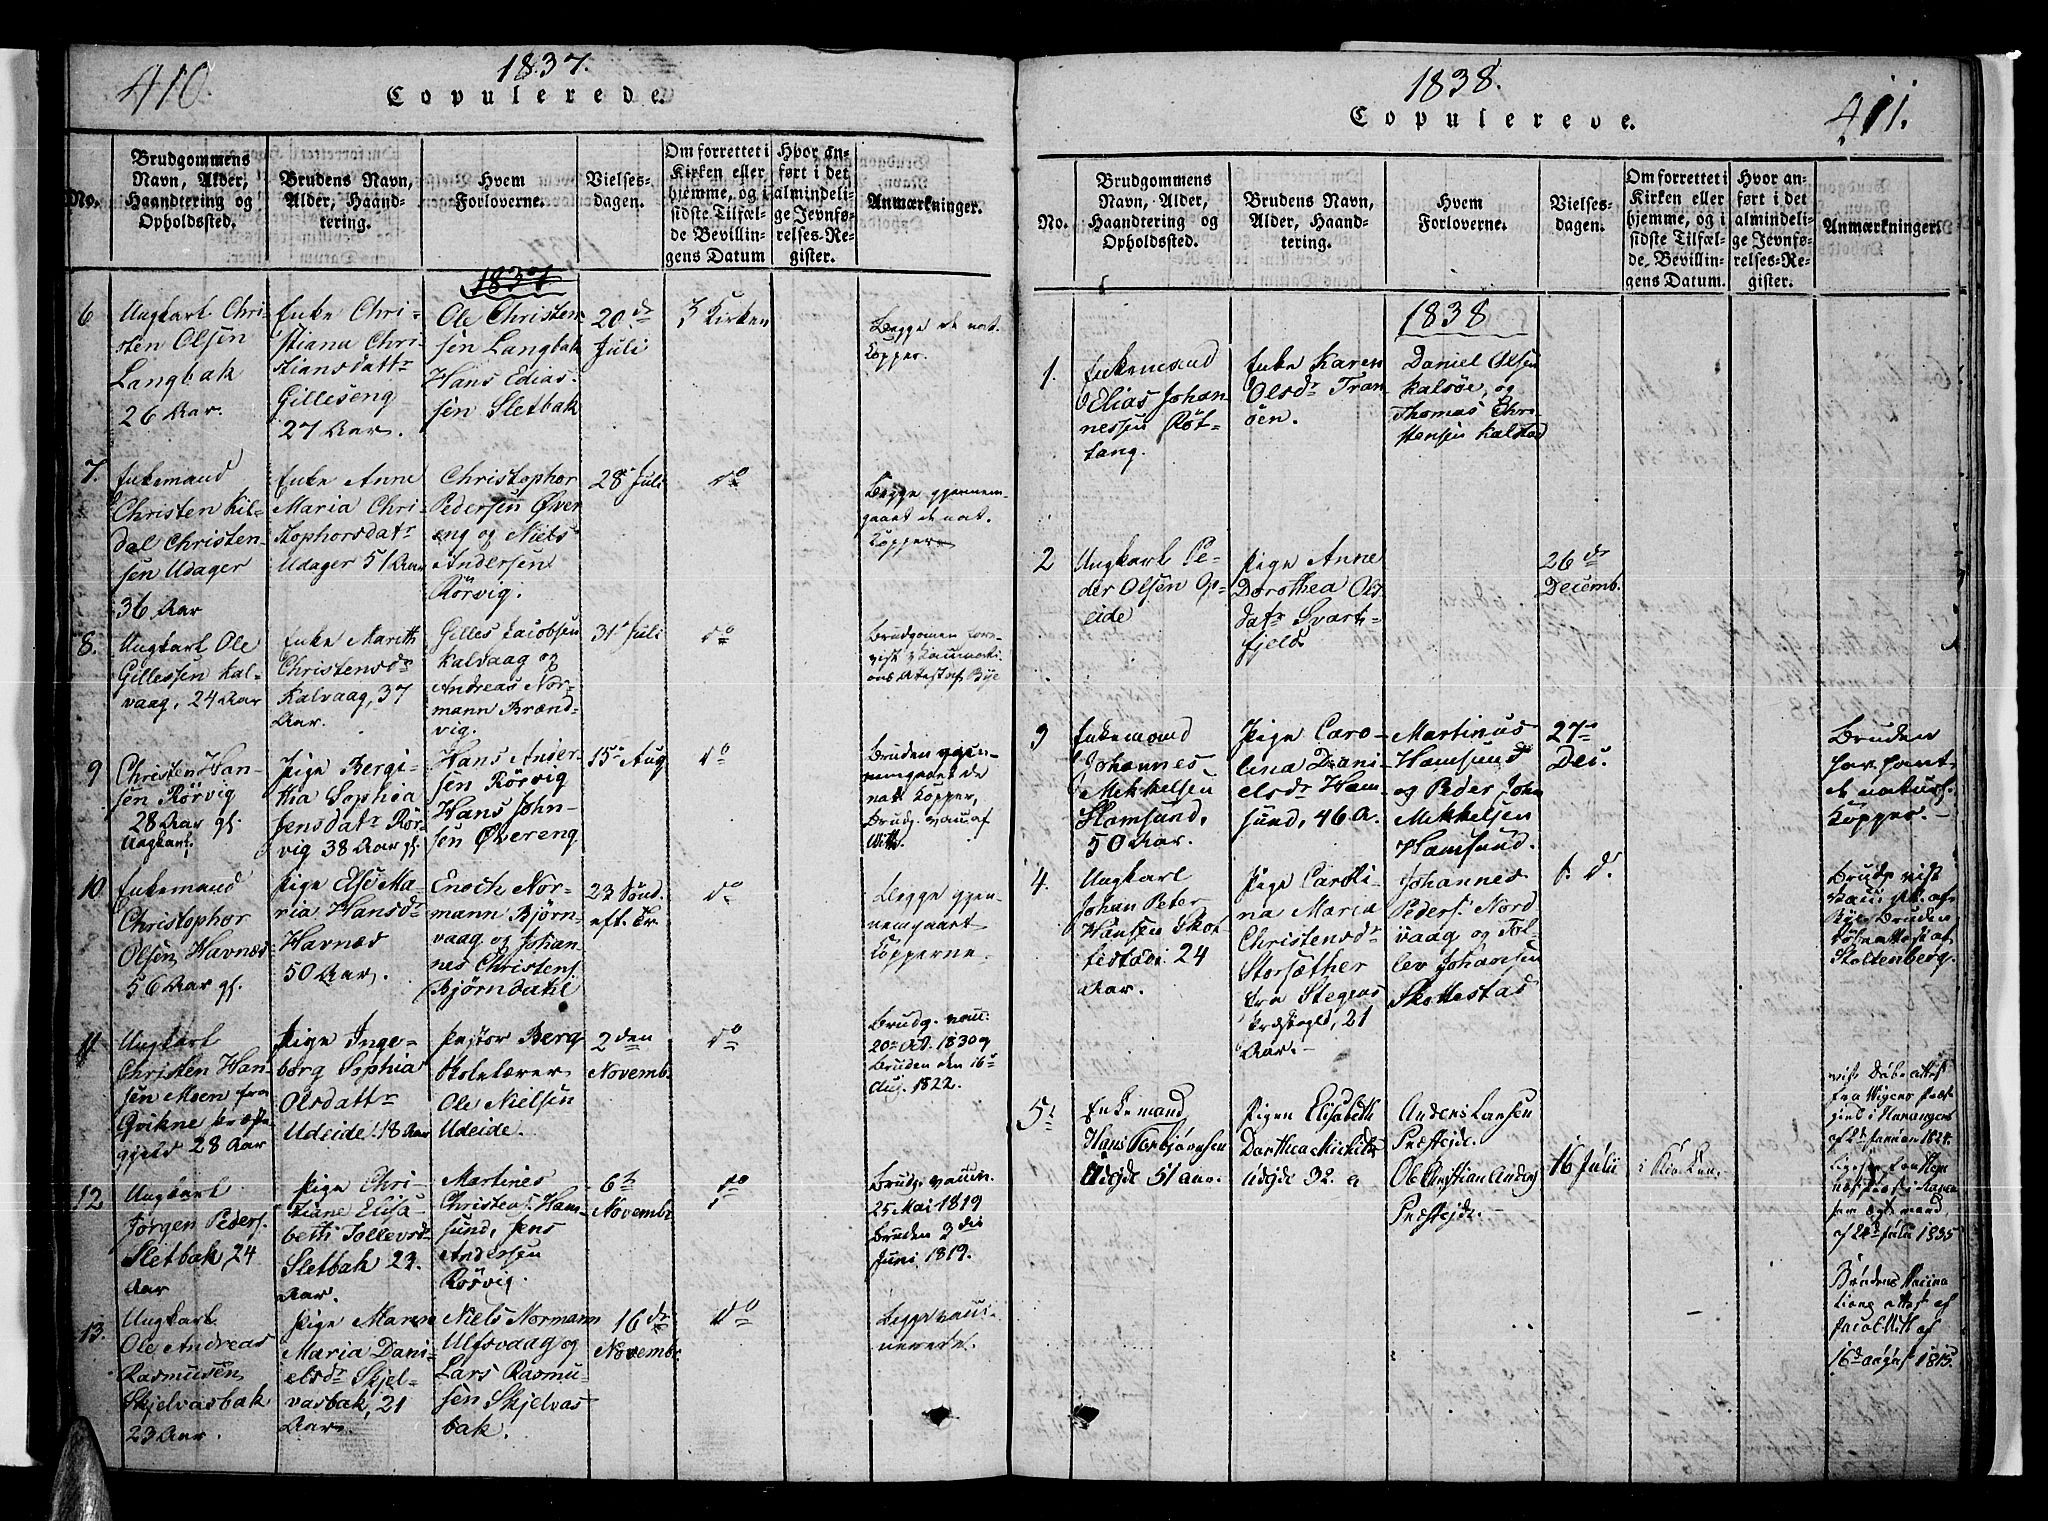 410.
1837.
Copulerede.
No.
Brudgommens
Navn, Alder,
Haandtering og
Opholdssted.
Brudens Navn,
Alder, Haand-
tering.
Hvem
Forloverne.
Vielses-
dagen.
Om forrettet i
Kirken eller
hjemme, og i
sidste Tilfæl-
de Bevillin-
gens Datum
Hvor an-
ført i det
almindeli-
ge Jevnfø-
relses-Re-
gister.
Anmærkninger.
1837
6
Ungkarl Chri-
sten Olsen
Langbak
26 Aar.
Enke Chri-
stiana Chri-
stiansdattr
Gilleseng
27 Aar.
Ole Christen-
sen Langbak
Hans Edias-
sen Sletbak
20de
Juli
I Kirken
Begge de nat.
Kopper.
7.
Enkemand
Christen Kil-
dal Christen-
sen Udager
36 Aar
Enke Anne
Maria Chri-
stophorsdatr
Udager 51 Aar
Christophor
Pedersen Øver
eng og Niels
Andersen
Rørvig.
28 Juli
do
Begge gjennem-
gaaet de nat.
Kopper
8.
Ungkarl Ole
Gillessen Kal-
vaag, 24 Aar
Enke Marith
Christensdr
Kalvaag, 37
Aar.
Gilles Jacobsen
Kalvaag og
Andreas Nor-
mann Brænd-
vig.
31 Juli
do
Brudgomen fore-
vist Vaccinati-
ons Attest af Bye
9
Christen Han-
sen Rørvig
28 Aar gl.
Ungkarl
Pige Bergi-
tha Sophia
Jensdatr Rør-
vig 38 Aar gl.
Hans Ander-
sen Rørvig
Hans John-
sen Øvereng
15 Aug
do
Bruden gjen-
nemgaaet de
nat. Kopper,
Brudg. vac. af
With.
10.
Enkemand
Christophor
Olsen Havnæs
56 Aar gl.
Pige Else Ma-
ria Hansdr
Havnæs
50 Aar.
Enoch Nor-
mann Bjørn-
vaag og Johan-
nes Christens.
Bjørndahl
23 Sönd.
eft. Tr.
do
Begge gjen-
nemgaaet
Kopperne.
11
Ungkarl
Christen Han-
sen Moen fra
Qvikne Præste
gjeld 28 Aar
Pige Inge-
borg Sophia
Olsdattr
Udeide 18 Aar
Pastor Berg
Skolelærer
Ole Nielsen
Udeide.
2den
Novemb.
do
Brudg. vacc.
20 Oct. 1830 og
Bruden den 16
Aug. 1822.
12
Ungkarl
Jörgen Peders.
Sletbak, 24
Aar
Pige Chri-
tiane Elisa-
beth Tollevsd
Sletbak 23.
Aar.
Martines
Christens. Ham-
sund, Jens
Andersen
Rörvig.
6te
Novemb.
do
Brudg. vaccin.
25 Mai 1819
Bruden 2 die
Juni 1819.
13.
Ungkarl
Ole Andreas
Rasmusen
Skjelvasbak
23 Aar.
Pige Maren
Maria Dani-
elsdr Skjel-
vasbak, 21
Aar.
Niels Normann
Ulfsvaag og
Lars Rasmu-
sen Skjelvas
bak.
16de
Novembr.
do
Begge vacci-
nerede.
1838.
Copulerede.
411.
No.
Brudgommens
Navn, Alder,
Haandtering og
Opholdssted.
Brudens Navn,
Alder, Haand-
tering.
Hvem
Forloverne.
Vielses-
dagen.
Om forrettet i
Kirken eller
hjemme, og i
sidste Tilfæl-
de, Bevillin-
gens Datum.
Hvor an-
ført i det
almindeli-
ge Jevnfø-
relses-Re-
gister.
Anmærkninger.
1838
1.
Enkemand
Elias Johan-
nessen Røt-
tang.
Enke Karen
Olsdr Tran-
öen.
Daniel Olsen
Kalsøe, og
Thomas Chri-
stensen Kalstad
2
Ungkarl Pe-
der Olsen Op-
eide
Pige Anne
Dorothea Ols
datr Svart-
fjeld.
26de
Decemb.
3
Enkemand
Johannes
Mekkelsen
Hamsund,
50 Aar.
Pige Caro-
lina Dani-
elsdr Ham-
sund, 46 A.
Martinus
Hamsund
og Peder John
Mekkelsen
Hamsund.
27de
Dec.
Bruden
har havt
de naturl.
Kopper.
4.
Ungkarl
Johan Peter
Hansen Skot-
testad 24
Aar.
Pige Caroli-
na Maria
Christensdr
Storsæther
fra Stegens
Præstegld, 21
Aar.
Johannes
Peders. Nord
vaag og Tol-
lev Johansen
Skottestad
f. d.
Brudg. vist
Vacc. att. af
Bye Bruden
do attest af
Stoltenberg.
5
Enkemand
Hans Torbjörnsen
Udejde 51 aar.
Pigen Elisabeth
Dorthea Mickelsd
Udejde 32. a
Anders Larsen
Præstejde.
Ole Christian Anders
Præstejde.
16 Julii
i Kirken.
vist Döbe attest
fra
1824.
af 24de Julii 1835
Brudens Vaccina
tions attest af
Jacob With af
16de august 1815.